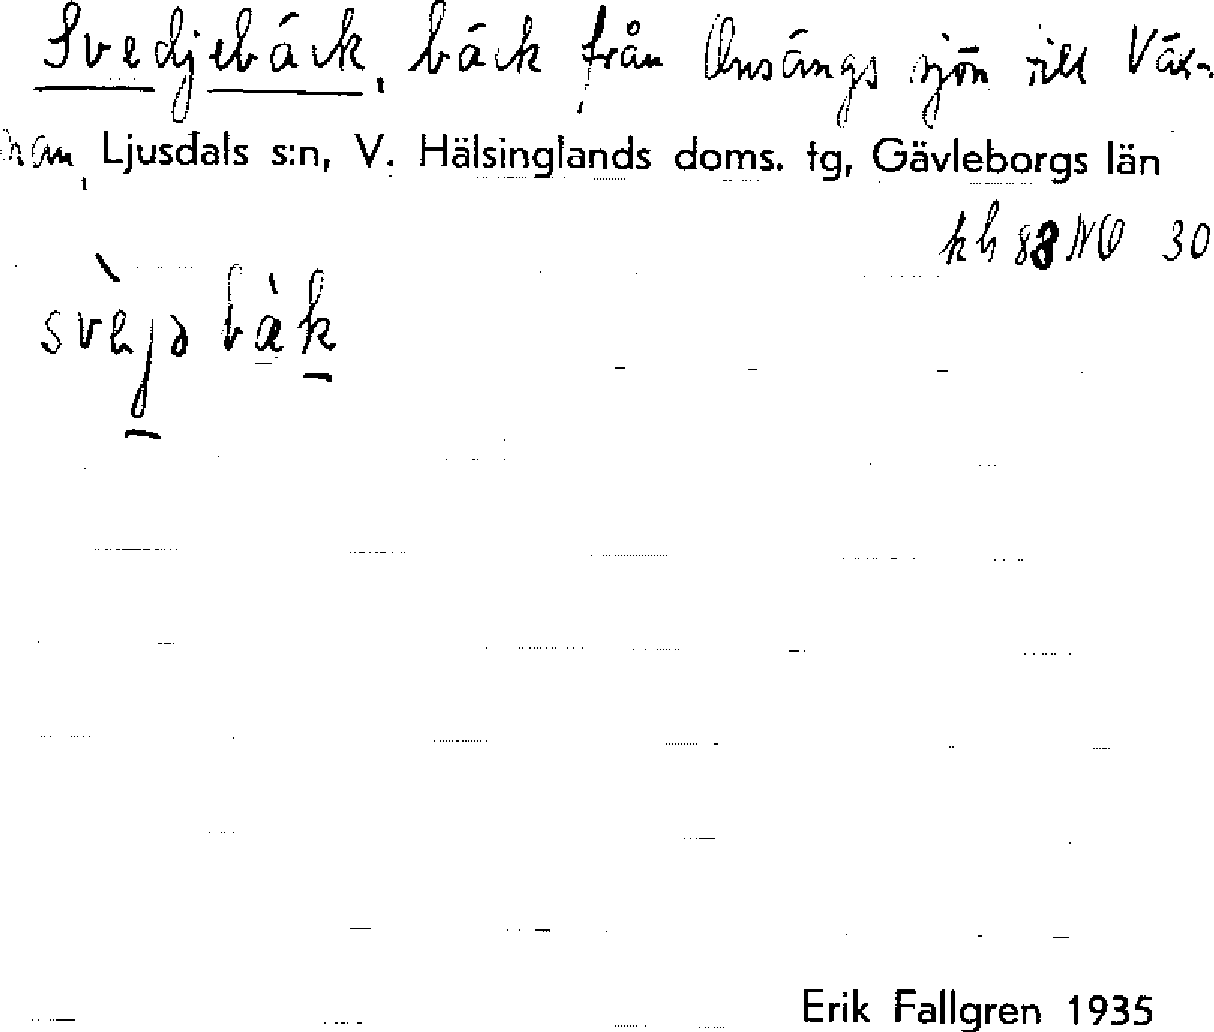 Svedjebäck, bäck från Onsängssjön till Växn-
nan, Ljusdals s:n, V. Hälsinglands doms. tg, Gävleborgs län
kb 88 NO 30
svèjə bàk
Erik Fallgren 1935